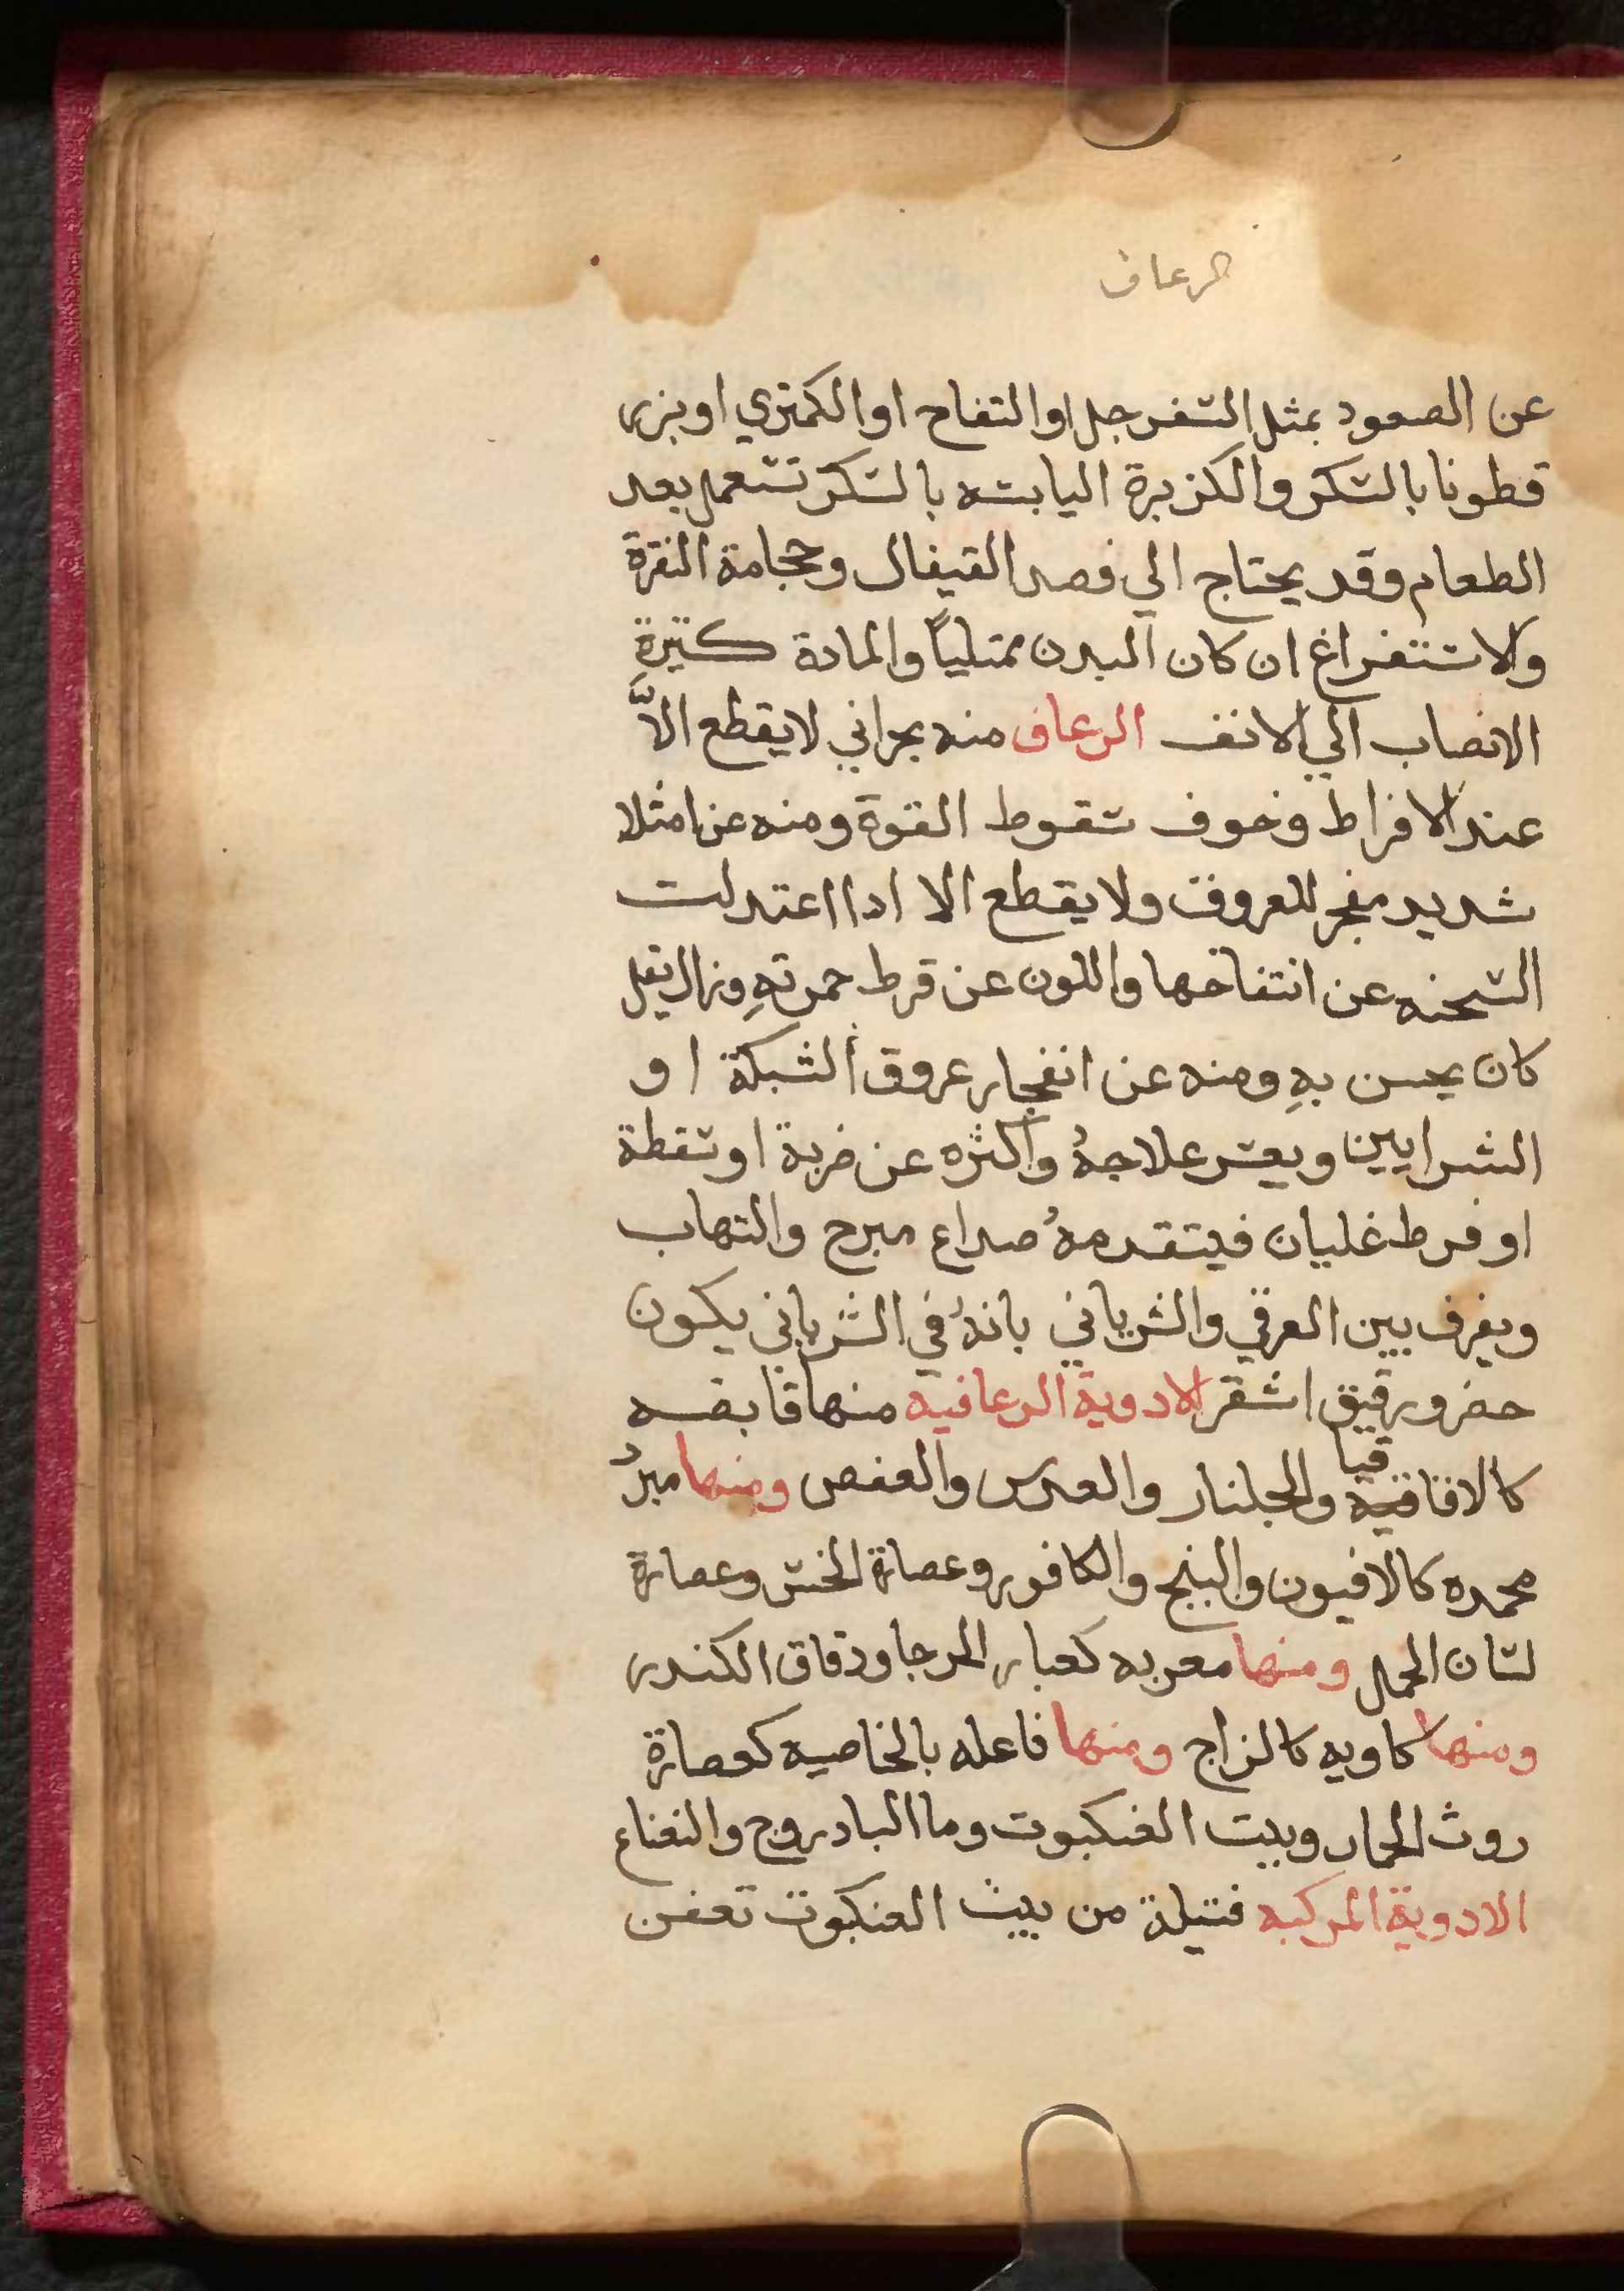 الرعاف
عن الصعود بمثل السفرجل او التفاح او الكمتري او بزر
قطونا بالسكر والكزبرة اليابسه بالسكر تستعمل بعد
الطعام وقد يحتاج الي فصد القيفال وحجامة النقرة
والاستفراغ ان كان البدن ممتلياً والمادة كثيرةِ
الانصاب الي الانف الرعاف منه بحراني لا يقطع الاَّ
عند الافراط وخوف سقوط القوة ومنه عن امتلا
شديد مفجر للعروق ولا يقطع الا ادا اعتدلت
السحنه عن انتفاخها واللون عن قرط حمرتهِ وزال ثقل
كان يحسن بهِ ومنه عن انفجار عروق الشبكة او
الشرايين ويعسر علاجهُ واكثره عن ضربة او سقطة
او فرط غليان فيتقدمهُ صداع مبرح والتهاب
ويفرف بين العرقي والشرياني بانهُ في الشرياني يكون
حفر ورقيق اشقر الادوية الرعافيه منها قابضه
كالاقاقيا والجلنار والعدس والعفص ومنها مبردُ
مخمده كالافيون والبنج والكافور وعصارة الخس وعصارة
لسان الحمل ومنها مغريه كغبار الرحا ودقاق الكندر
ومنها كاويه كالزاج ومنها فاعله بالخاصيه كعصارة
روث الحمار وبيت العنكبوت وما البادروج والنعناع
الادوية المركبه فتيلة من بيت العنكبوت تغمن